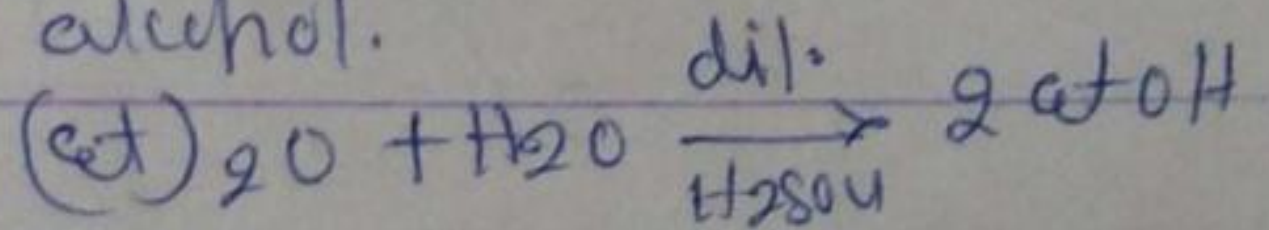 alcohol.
(et)2O + H2O \xrightarrow[H2SO4]{dil.} 2 etOH